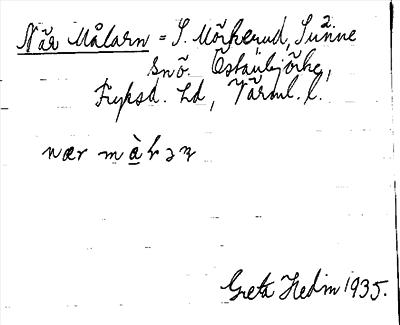 När Målarn = S. Mörkerud, Sunne
snö. Östanbjörke,
Fryksd. hd, Värml. l.
nær m
Greta Hedin 1935.